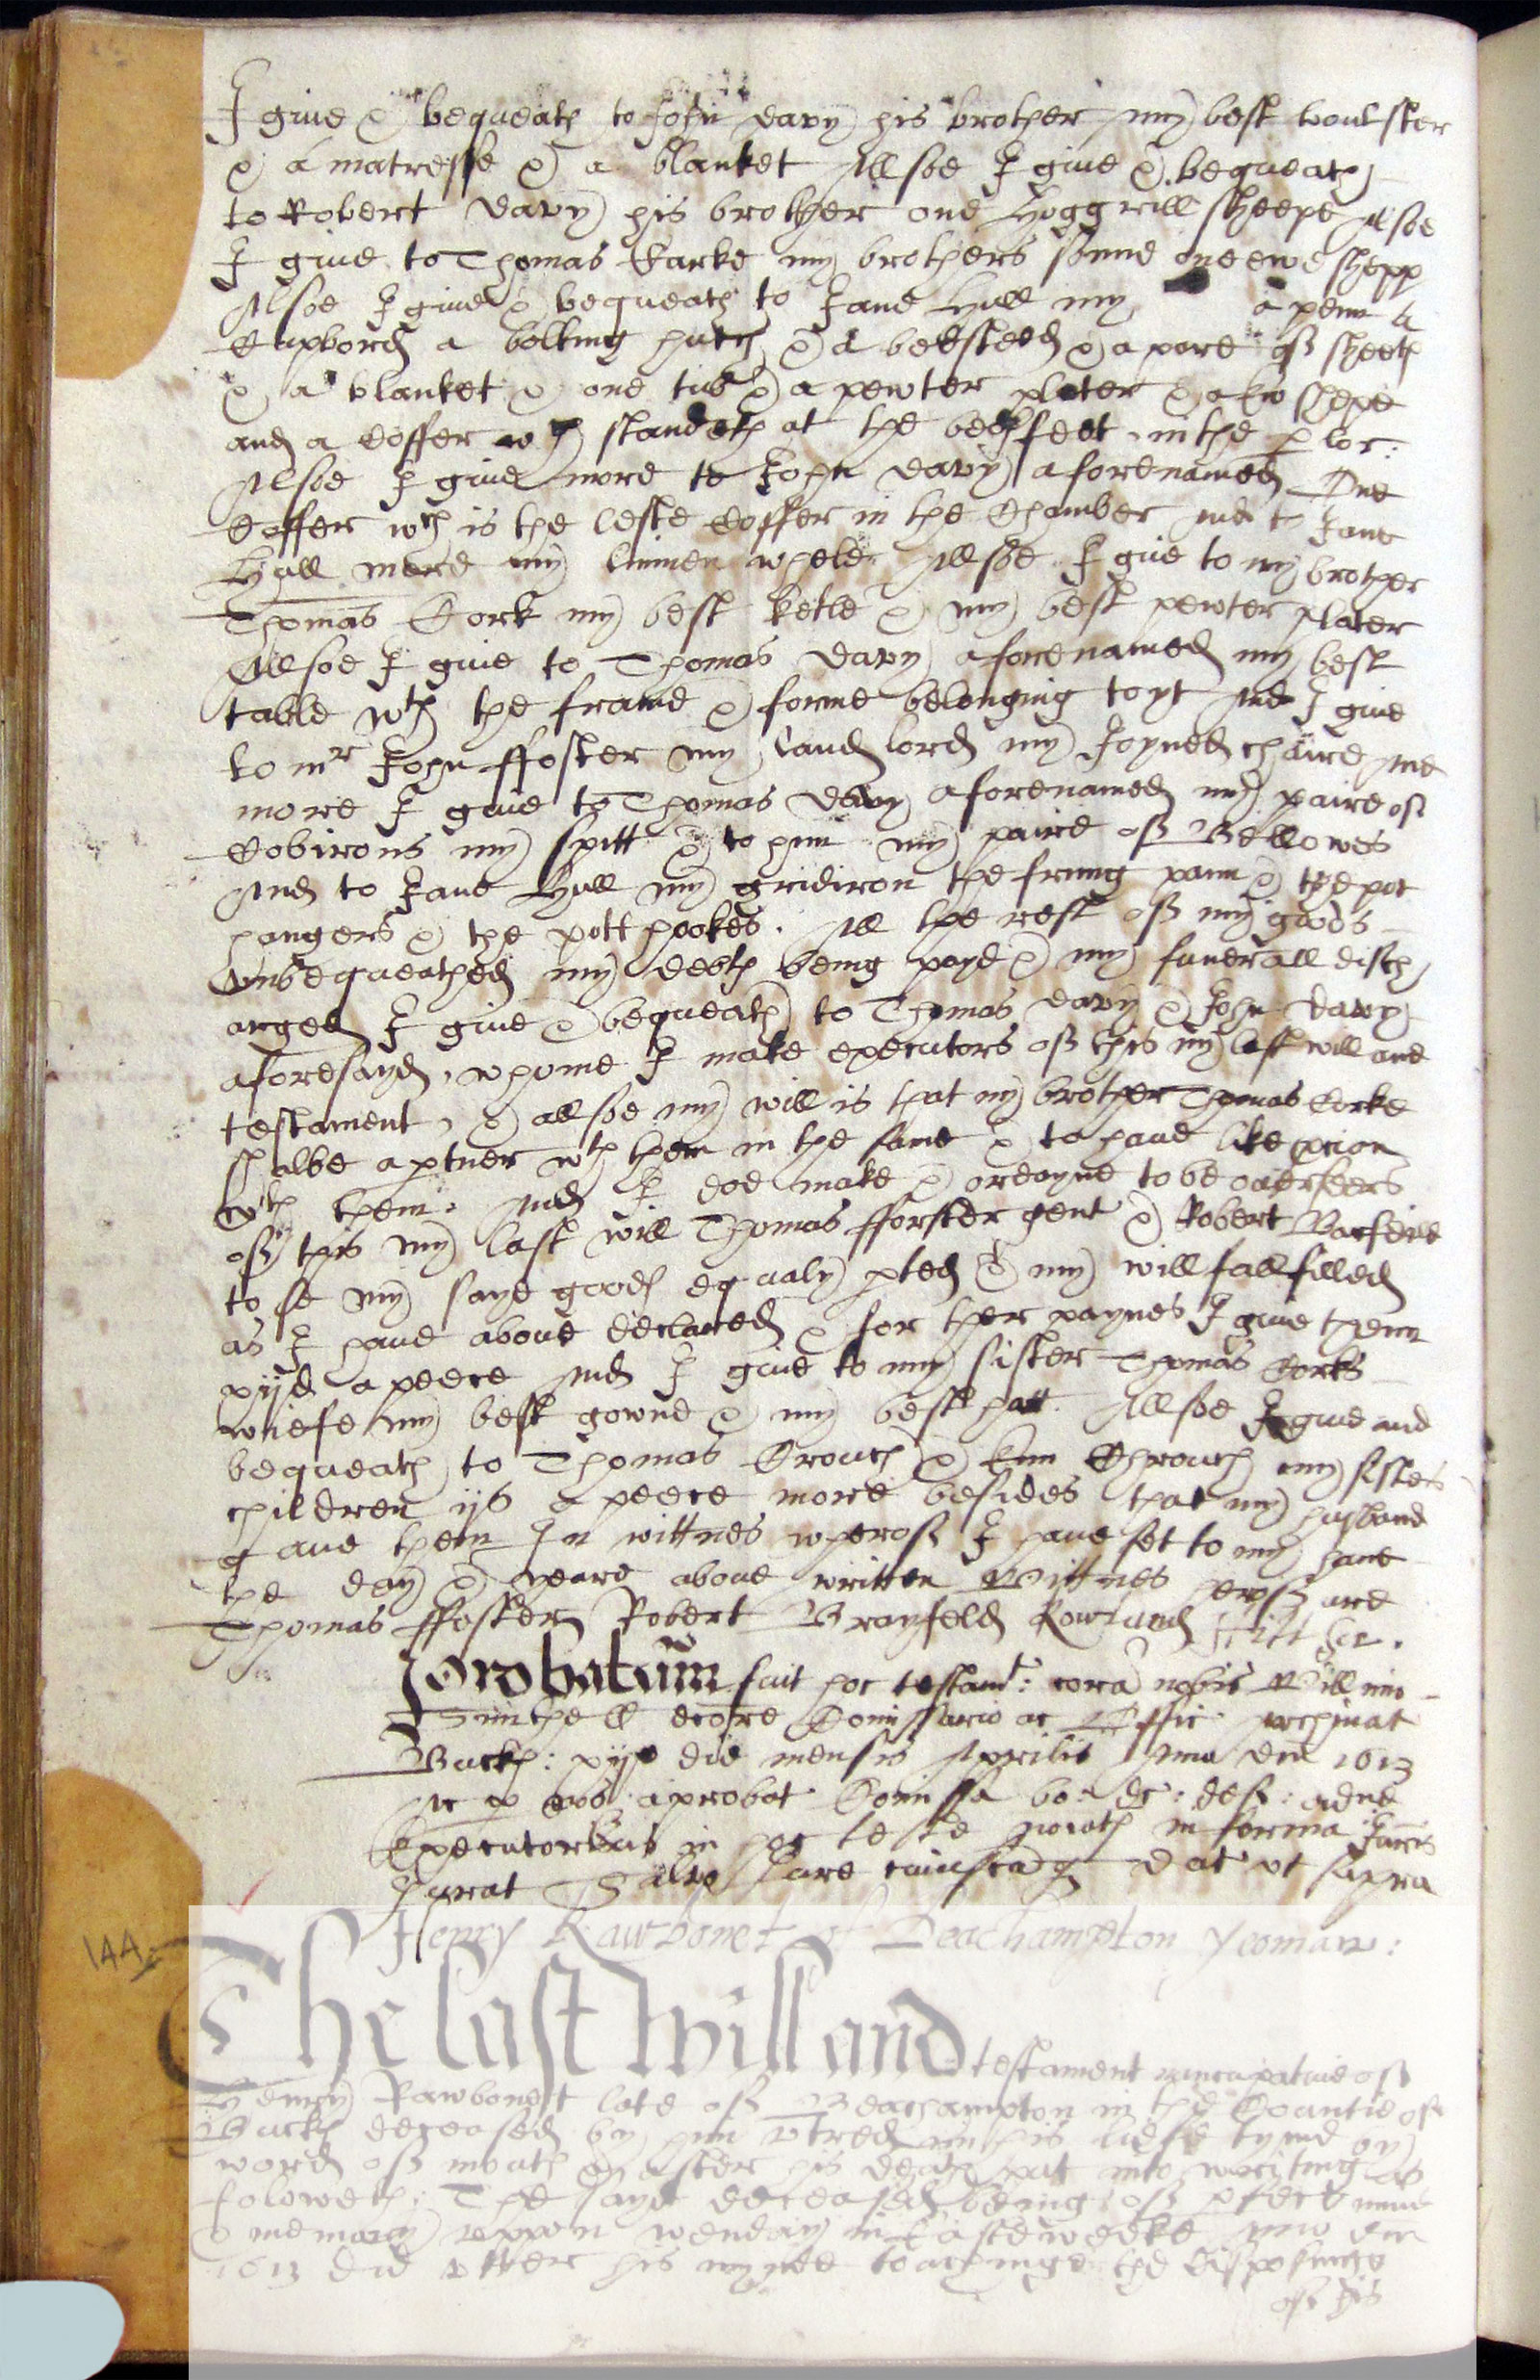 I give & bequeath to John davy his brother my best boulster
& a matresse & a blanket Allsoe I give & bequeath
to Robert davy his brother one hoggrill sheepe Alsoe
I give to Thomas Corke my brothers sonne one ewe shepp
Alsoe I give & bequeath to Jane Hull my a penn &
Cupbord a bolting hutch & a bedsteed & a pare of sheets
& a blanket & one tub & a pewter plater & a ew shepe
and a coffer wch standeth at the beds feet in the plor:
Alsoe I give more to John davy aforenamed One
Coffer wch is the leste coffer in the Chamber And to Jane
Hull more my linnen whele Allsoe I give to my brother
Thomas Cork my best ketle & my best pewter plater
Allsoe I give to Thomas davy aforenamed my best
table wth the frame & forme belonging to yt And I give
to mr John ffoster my land lord my Joyned chaire And
more I give to Thomas davy aforenamed my paire of
Cobirons my spitt & to him my paire of Bellowes
And to Jane Hull my gridiron the friing pann & the pot
hangers & the pott hookes. All the rest of my goods
Unbequeathed my debts being payd & my funerall disch
arged I give & bequeath to Thomas davy & John davy
aforesayd, whome I make executors of this my last will and
testament, & allsoe my will is that my brother Thomas Corke
shalbe a ptner wth them in the same & to have like porcion
wth them: And I doe make & ordayne to be overseers
of this my last will Thomas fforster gent & Robert
to se my sayd goods equaly pted & my will fullfilled
as I have above declared & for ther paynes I give them
xijd a peece And I give to my sister Thomas Corks
wiefe my best gowne & my best hatt. Allsoe I give and
bequeath to Thomas Crouch & Ann Chrouch my sisters
children ijs a peece more besides that my husband
gave them In wittnes wherof I have set to my hand
the day & yeare above written Wittnes herof are
Thomas ffoster Robert Brayfeld Rowland
Probatum fuit hoc testamt: cora nobis Willimo
decore Comissario ac Offic Archinat
Buck: xijo die mensis Aprilis Anno dni 1613
Ac p nos aprobat Comissa bo: &c: def: adne
Executoribus in hoc teste noiat in forma Juris
Jurat Salvo Jure cuiuscunq Dat ut supra
Henry Rawbonet of Beachampton Yeoman:
144
The last will and testament nuncupative of
Henry Rawbonett late of Beachampton in the Countie of
Buck deceased by him utred in his liefe tyme by
word of mouth & after his death put into writing as
foloweth: The sayd deceased being of pfect mind
& memory uppon wenday in Easteweeke Anno dni
1613 did utter his mynde touchinge the disposinge
of his